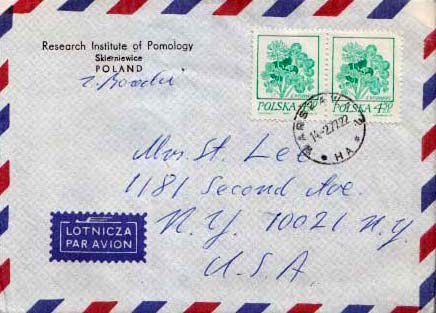 Research Institute of Pomology
Skierniewice
POLAND
POLSKA 4.50
POLSKA 4.50
WARSZAWA
HA
Mrs. St. Lee
1181 Second Ave.
N.Y. 10021 N.Y.
U.S.A
LOTNICZA
PAR AVION